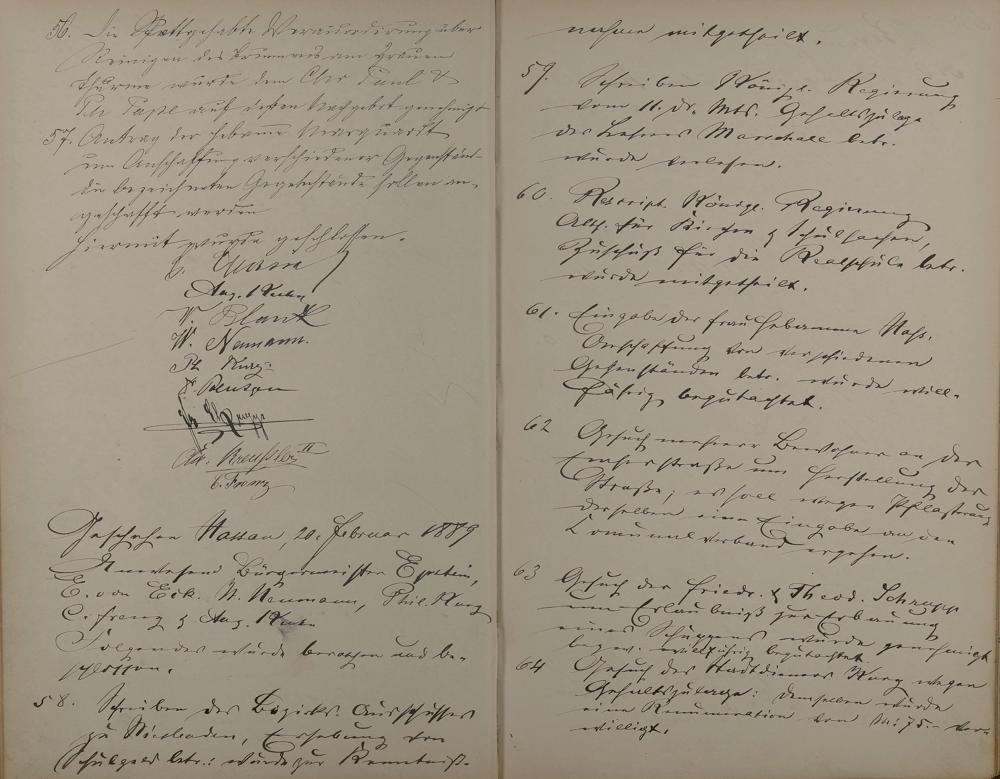 56. Die Stattgehabte Verausordirung über
Reinigen des Brunnens am Grauen
Thurme wurde dem Chr Paul &
Ph Pape auf deren Nachgebot genehmigt
57. Antrag der Hebame Marquardt
um Anschaffung verschiedener Gegenstände
die bezeichneten Gegenstände sollen an-
geschafft werden
Hiermit wurde geschlossen.
Aug. Kuhn
V. Blank
W. Neumann.
Ph Kurz
Ad. Kreußler II
C. Franz
Geschehen Nassau, 20. Februar 1889
Anwesend Bürgermeister Epstein,
E. von Eck. W. Neumann, Phil. Kurz
C. Franz & Aug. Kuhn
Folgendes wurde berathen und be-
schlossen.
58. Schreiben des Bezirks Ausschusses
zu Wiesbaden, Erhebung von
Schulgeld betr.: wurde zur Kenntniß-
nahme mitgetheilt.
59. Schreiben Königl. Regierung
vom 11. ds. Mts. Gehaltszulage
des Lehrers Marschall betr.
wurde verlesen.
60. Rescript Königl. Regierung
Abth. für Kirchen & Schulsachen,
Zuschuß für die Realschule betr.
wurde mitgetheilt.
61. Eingabe der Frau Hebamme
Anschaffung von verschiedenen
Gegenständen betr. wurde will-
fährig begutachtet.
62 Gesuch mehrerer Bewohner an der
Emserstraße um Herstellung der
Straße; es soll wegen Pflasterung
derselben eine Eingabe an den
Comunalverband ergehen.
63 Gesuch der Friedr. & Theod. Schrupp
um Erlaubniß zur Erbauung
eines Schuppens wurde genehmigt
bezw. willfährig begutachtet
64 Gesuch des Stadtdieners Kurz wegen
Gehaltszulage: demselben wurde
eine Remuneration von M: 75.- ver-
willigt.